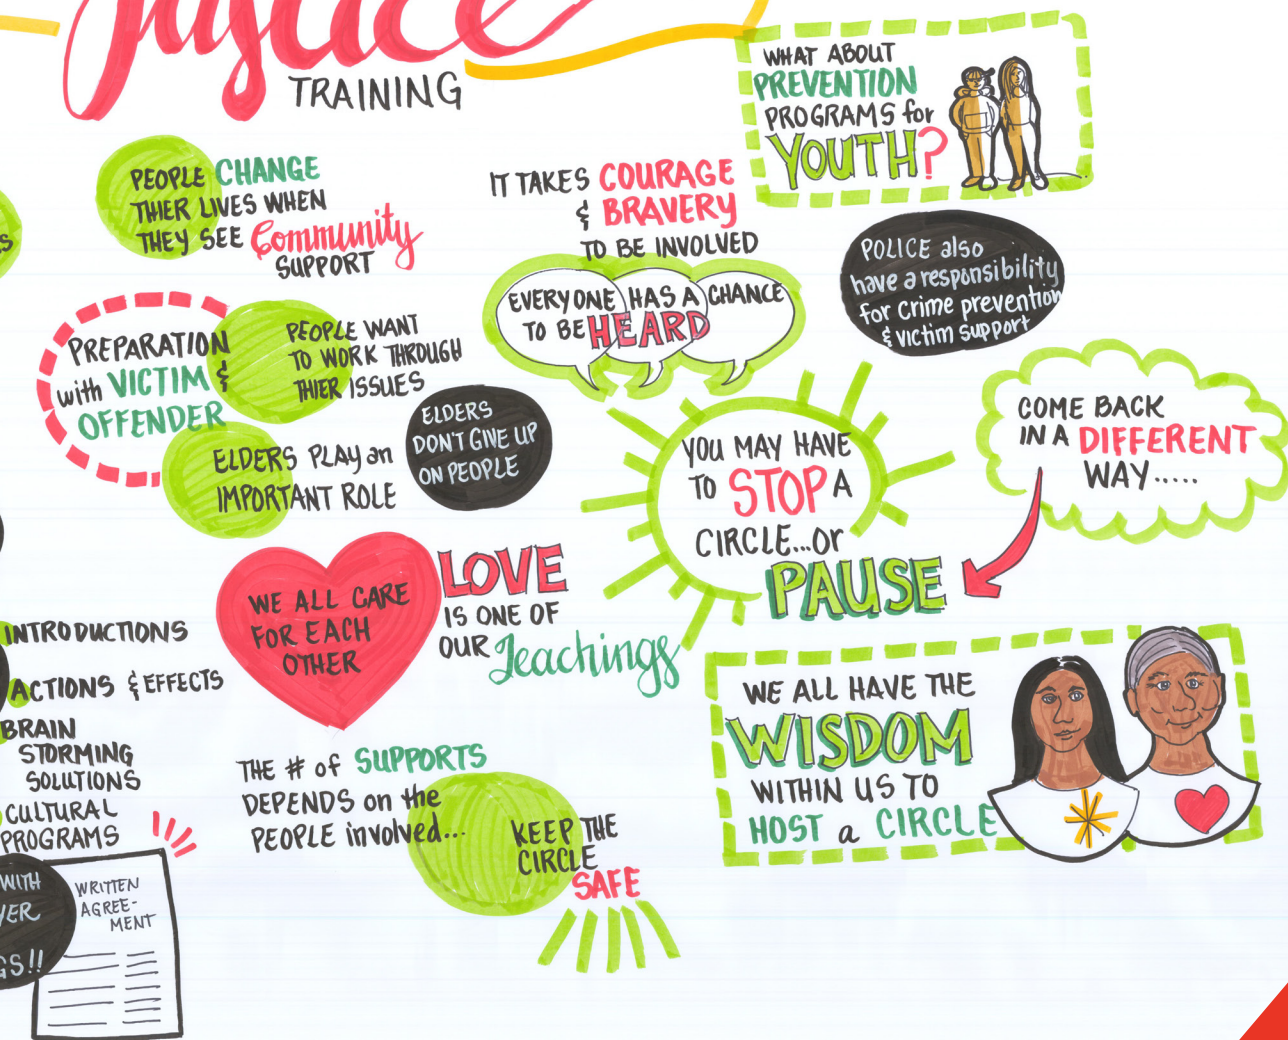 Justice
TRAINING
WHAT ABOUT
PREVENTION
PROGRAMS for
YOUTH?
PEOPLE CHANGE
THIER LIVES WHEN
THEY SEE Community
SUPPORT
IT TAKES COURAGE
& BRAVERY
TO BE INVOLVED
EVERYONE HAS A CHANCE
TO BE HEARD
POLICE also
have a responsibility
for crime prevention
& victim support
PREPARATION
with VICTIM &
OFFENDER
PEOPLE WANT
TO WORK THROUGH
THIER ISSUES
ELDERS PLAY an
IMPORTANT ROLE
ELDERS
DON'T GIVE UP
ON PEOPLE
YOU MAY HAVE
TO STOP A
CIRCLE...or
PAUSE
COME BACK
IN A DIFFERENT
WAY.....
WE ALL CARE
FOR EACH
OTHER
LOVE
IS ONE OF
OUR Teachings
INTRODUCTIONS
ACTIONS & EFFECTS
BRAIN
STORMING
SOLUTIONS
CULTURAL
PROGRAMS
WITH
GS!!
WRITTEN
AGREE-
MENT
THE # of SUPPORTS
DEPENDS on the
PEOPLE involved...
KEEP THE
CIRCLE
SAFE
WE ALL HAVE THE
WISDOM
WITHIN US TO
HOST a CIRCLE